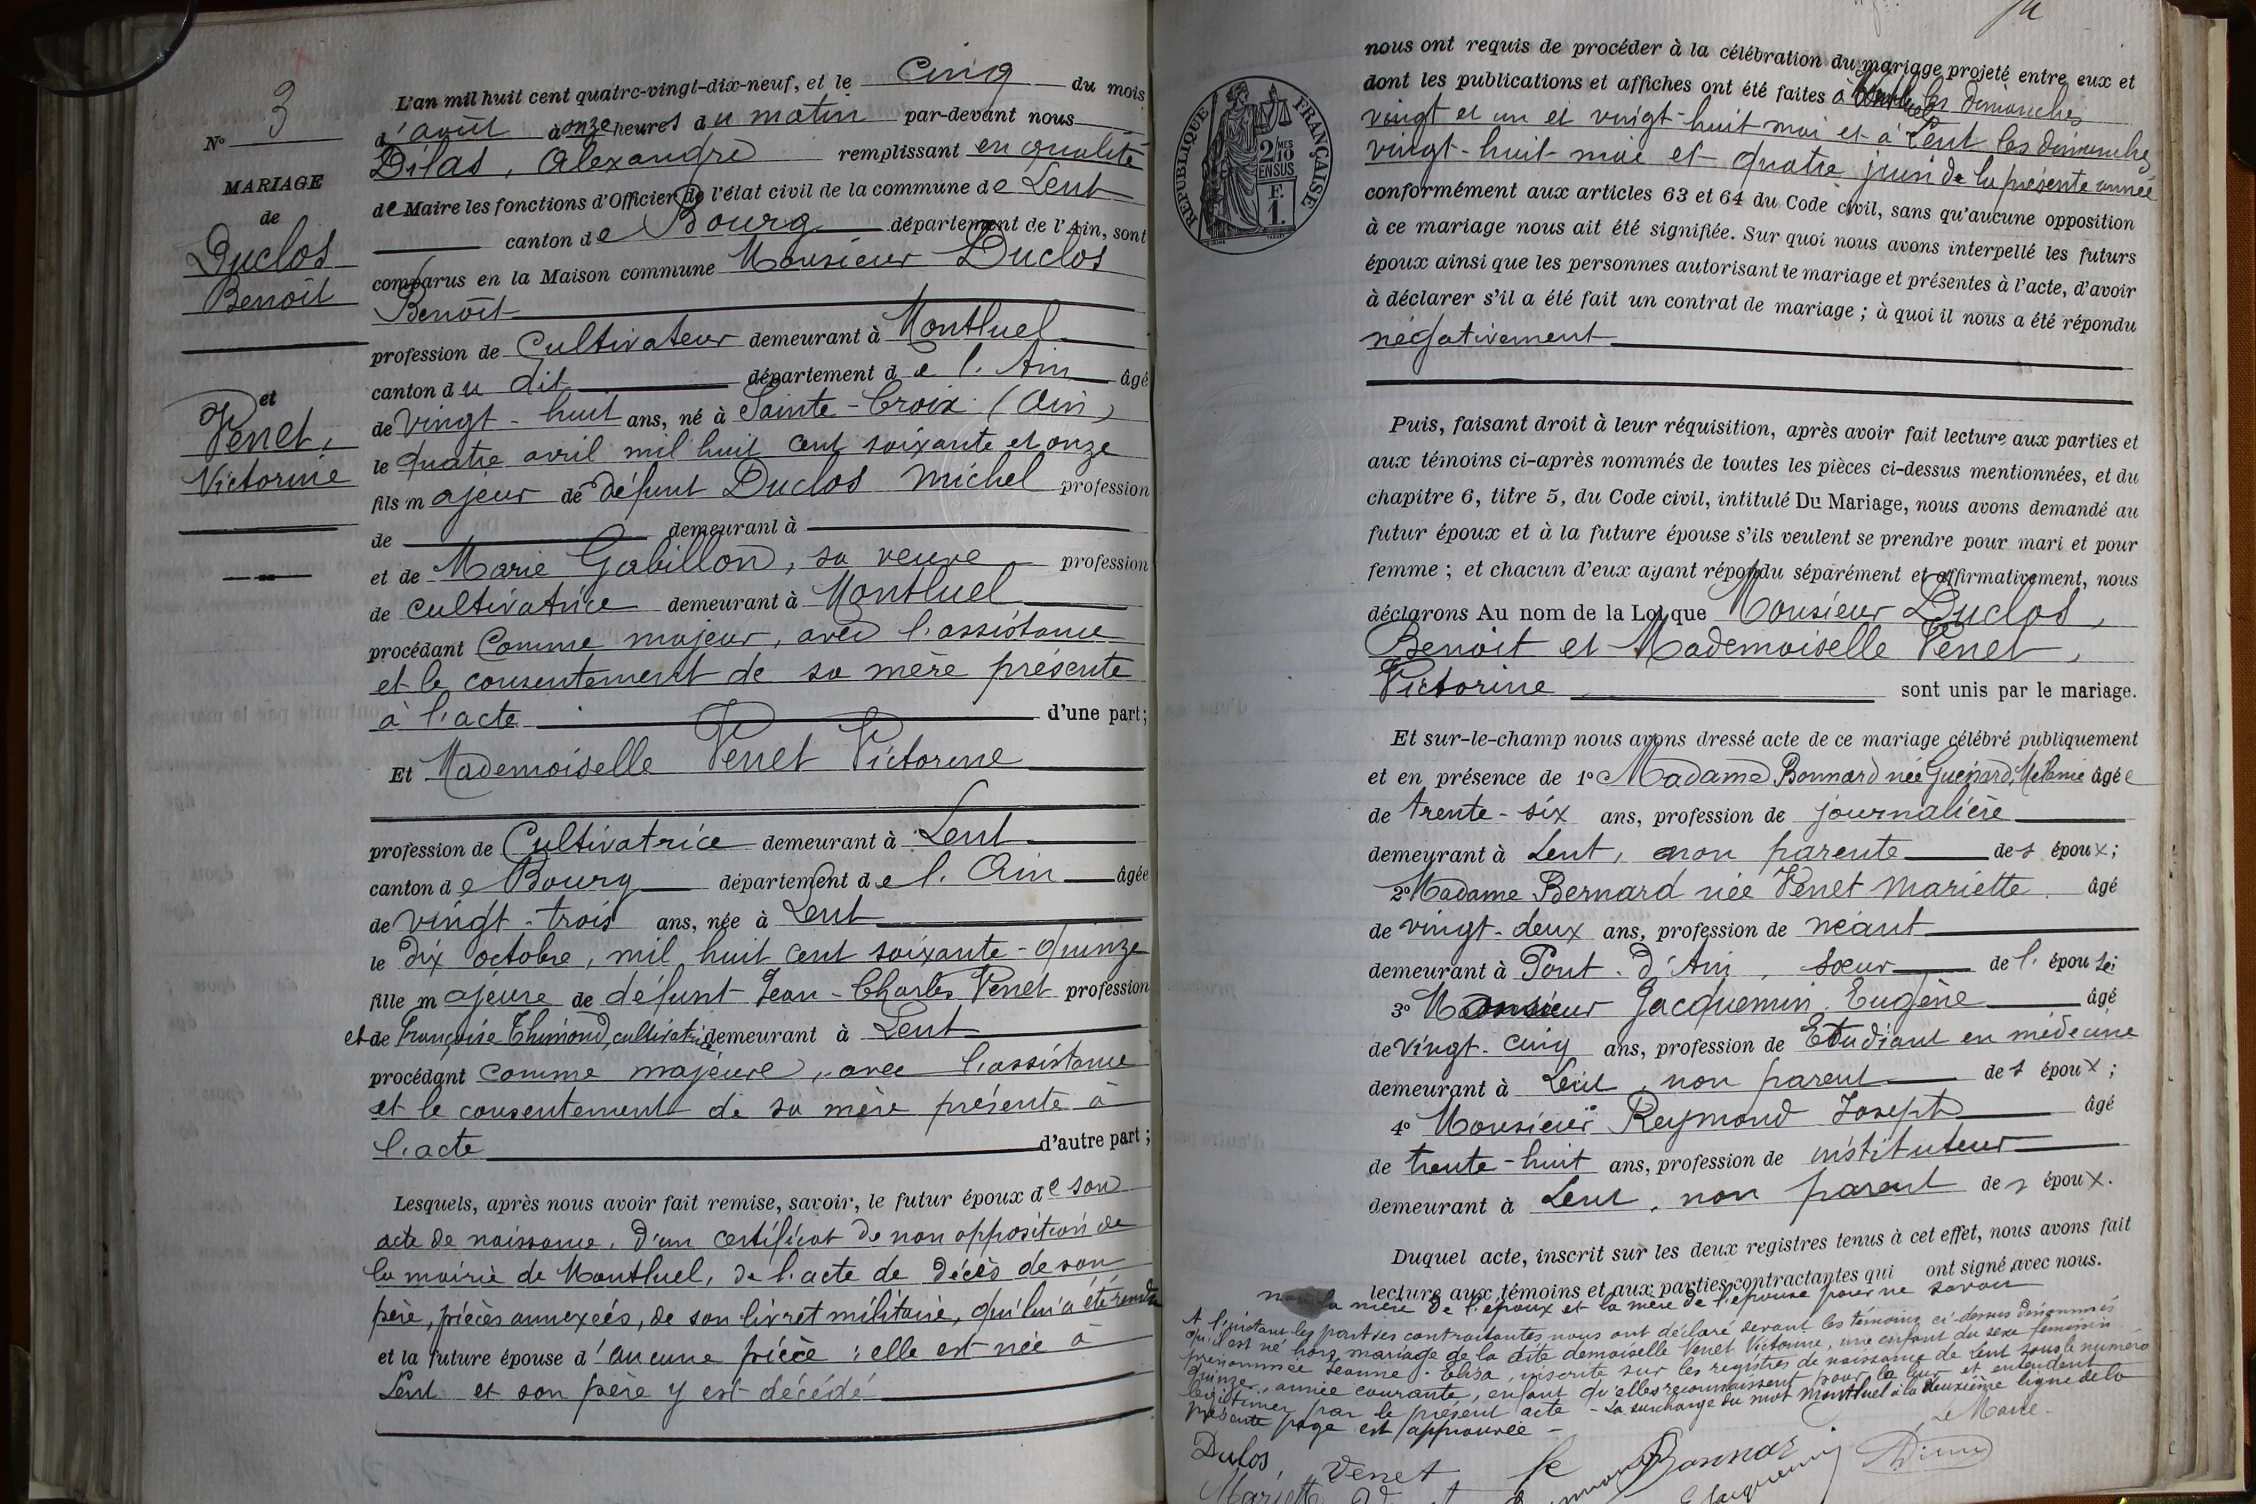 N° 3
MARIAGE
de
Duclos
Benoit
et
Venet,
Victorine
L'an mil huit cent quatre-vingt-dix-neuf, et le Cinq du mois
d'août à onze heures du matin par-devant nous
Dilas, Alexandre remplissant en qualité
de Maire les fonctions d'Officier de l'état civil de la commune de Lent
canton de Bourg département de l'Ain, sont
comparus en la Maison commune Monsieur Duclos
Benoit
profession de Cultivateur demeurant à Montluel
canton du dit département de l'Ain âgé
de vingt-huit ans, né à Sainte-Croix (Ain)
le quatre avril mil huit cent soixante et onze
fils majeur de défunt Duclos Michel profession
de demeurant à
et de Marie Gabillon, sa veuve profession
de cultivatrice demeurant à Montluel
procédant comme majeur, avec l'assistance
et le consentement de sa mère présente
à l'acte d'une part;
Et Mademoiselle Venet Victorine
profession de Cultivatrice demeurant à Lent
canton de Bourg département de l'Ain âgée
de vingt-trois ans, née à Lent
le dix octobre, mil huit cent soixante-quinze
fille majeure de défunt Jean-Charles Venet profession
et de Françoise Thimond, cultivatrice demeurant à Lent
procédant comme majeure, avec l'assistance
et le consentement de sa mère présente à
l'acte d'autre part;
Lesquels, après nous avoir fait remise, savoir, le futur époux de son
acte de naissance, d'un certificat de non opposition de
la mairie de Montluel, de l'acte de décès de son
père, pièces annexées, de son livret militaire, qui lui a été rendu
et la future épouse d'aucune pièce: elle est née à
Lent et son père y est décédé
RÉPUBLIQUE FRANÇAISE
2/10 MES
EN SUS
F.
1.
nous ont requis de procéder à la célébration du mariage projeté entre eux et
dont les publications et affiches ont été faites à Montluel les dimanches
vingt et un et vingt-huit mai et à Lent les dimanches
vingt-huit mai et quatre juin de la présente année
conformément aux articles 63 et 64 du Code civil, sans qu'aucune opposition
à ce mariage nous ait été signifiée. Sur quoi nous avons interpellé les futurs
époux ainsi que les personnes autorisant le mariage et présentes à l'acte, d'avoir
à déclarer s'il a été fait un contrat de mariage; à quoi il nous a été répondu
négativement
Puis, faisant droit à leur réquisition, après avoir fait lecture aux parties et
aux témoins ci-après nommés de toutes les pièces ci-dessus mentionnées, et du
chapitre 6, titre 5, du Code civil, intitulé Du Mariage, nous avons demandé au
futur époux et à la future épouse s'ils veulent se prendre pour mari et pour
femme; et chacun d'eux ayant répondu séparément et affirmativement, nous
déclarons Au nom de la Loi que Monsieur Duclos,
Benoit et Mademoiselle Venet,
Victorine sont unis par le mariage.
Et sur-le-champ nous avons dressé acte de ce mariage célébré publiquement
et en présence de 1° Madame Bonnard née Guénard, Mélanie âgée
de trente-six ans, profession de journalière
demeurant à Lent, non parente des époux;
2° Madame Bernard née Venet Mariette âgé
de vingt-deux ans, profession de néant
demeurant à Pont-d'Ain, sœur de l'épouse;
3° Monsieur Jacquemin Eugène âgé
de vingt-cinq ans, profession de Etudiant en médecine
demeurant à Lent, non parent des époux;
4° Monsieur Reymond Joseph âgé
de trente-huit ans, profession de instituteur
demeurant à Lent, non parent des époux.
Duquel acte, inscrit sur les deux registres tenus à cet effet, nous avons fait
lecture aux témoins et aux parties contractantes qui ont signé avec nous.
la mère de l'époux et la mère de l'épouse pour ne savoir
A l'instant les parties contractantes nous ont déclaré devant les témoins ci-dessus dénommés
qu'il est né hors mariage de la dite demoiselle Venet Victorine, une enfant du sexe féminin
prénommée Jeanne-Elisa, inscrite sur les registres de naissance de Lent sous le numéro
quinze, année courante, enfant qu'elles reconnaissent pour la leur et entendent
légitimer par le présent acte - La surcharge du mot Montluel à la deuxième ligne de la
présente page est approuvée -
Le Maire
Duclos, Venet Bonnard
Mariette Jacquemin